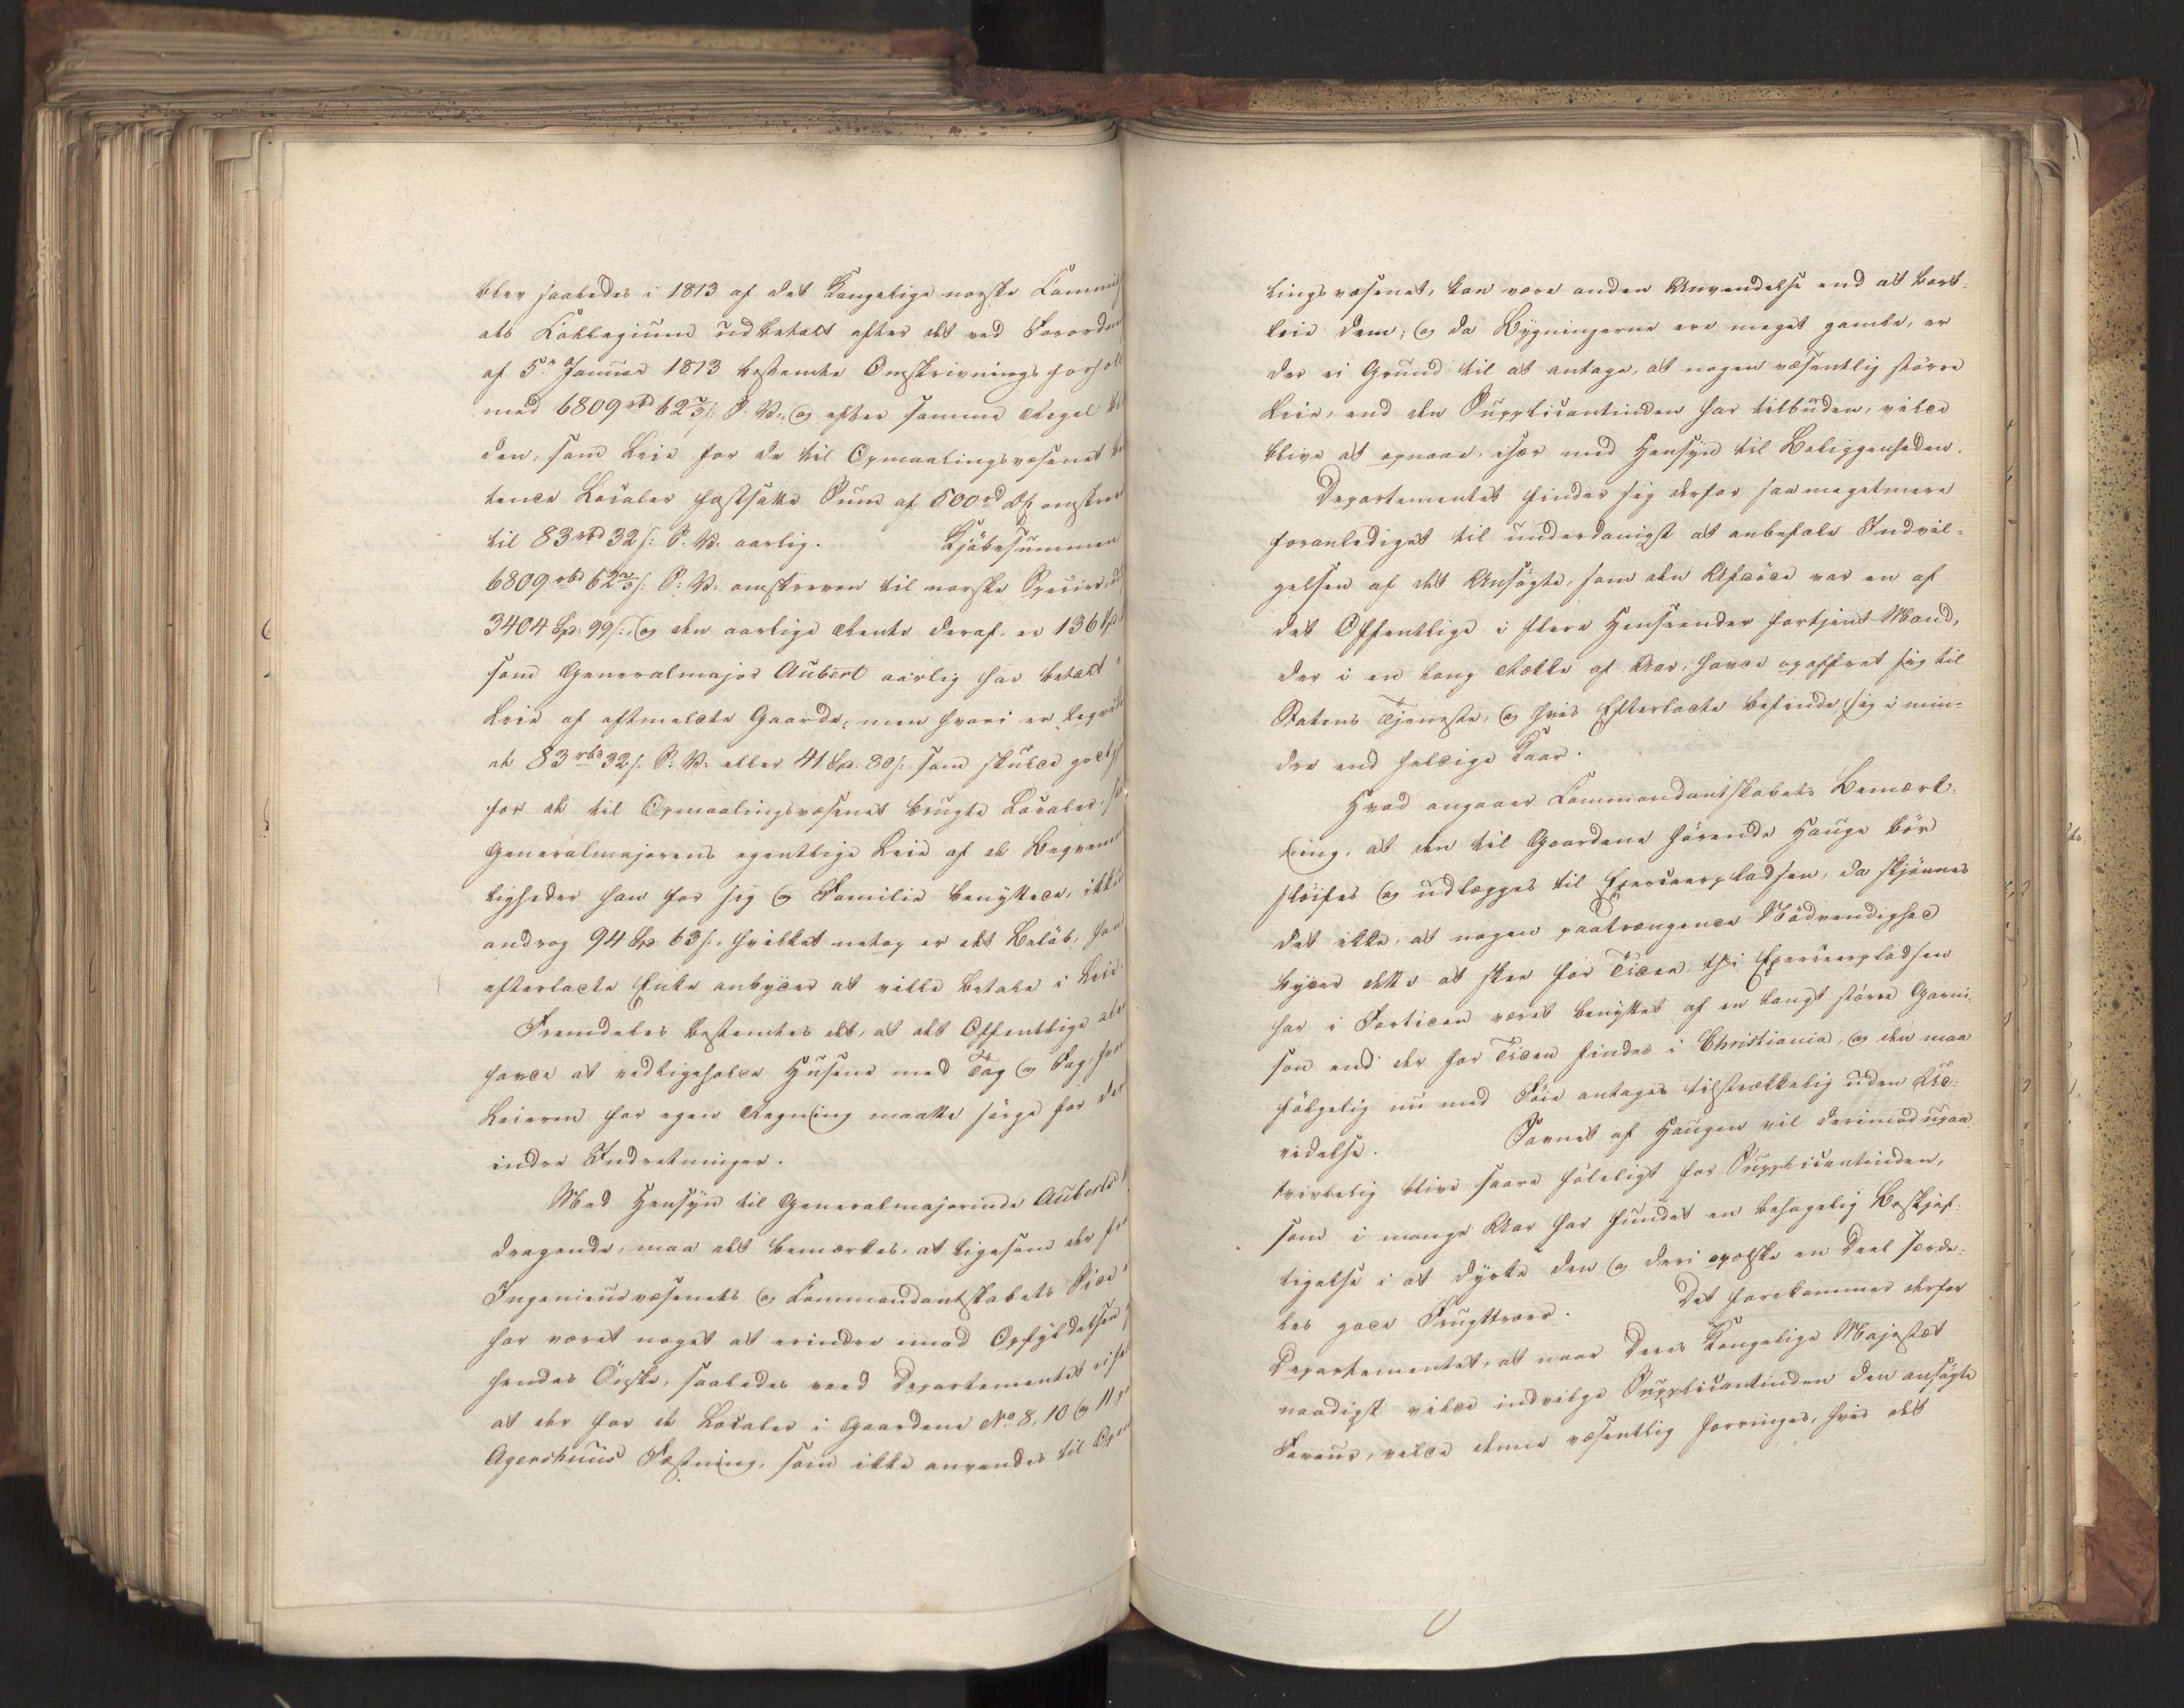 blev saaledes i 1813 af det Kongelige norske
als Collegium udbetalt efter det ved
af 5te Januar 1813 bestemte Omskrivningsforhold
med 6809 rbd 62 2/3 s: S: V:, og efter samme Regel
den, som Leie for de til Opmaalingsvæsenet
tence Localer fastsatte Sum af 500 rd
til 83 rbd 32 s: S. V. aarlig. Kjöbesummen
6809 rbd 62 2/3 s: S: V: omskreven til norske Specier,
3404 Spd: 99 s:, og den aarlige Rente deraf, er 136
som Generalmajor Aubert aarlig har betalt i
Leie af oftmeldte Gaarde, men hvori er
de 83 rbd 32 s. S: V: eller 41 Spd. 80 s: som skulde
for de til Opmaalingsvæsenet brugte Localer,
Generalmajorens egentlige Leie af de
ligheder han for sig og Familie benyttede, ikke
androg 94 Spd. 63 s:, hvilket netop er det Belöb,
efterladte Enke anbyder at ville betale i Leie.
Fremdeles bestemtes det, at det Offentlige
havde at vedligeholde Husene med Tag og Fag,
Leieren for egen Regning maatte sörge for
indre Indretninger.
Med Hensyn til Generalmajorinde Auberts
dragende, maa det bemærkes, at ligesom der fra
Ingenieurvæsenets og Commandantskabets Side
har været noget at erindre imod Opfyldelsen
hendes Önske, saaledes veed Departementet
at der for de Localer i Gaardene No 8, 10 og 11
Agershuus Fæstning, som ikke anvendes til
lingsvæsenet, kan være anden Anvendelse end at bort-
leie dem; og da Bygningerne ere meget gamle, er
der ei Grund til at antage, at nogen væsentlig större
Leie, end den Supplicantinden har tilbuden, vilde
blive at opnaae, især med Hensyn til Beliggenheden.
Departementet finder sig derfor saameget mere
foranlediget til underdanigst at anbefale Indvil-
gelsen af det Ansögte, som den Afdöde var en af
det Offentlige i flere Henseender fortjent Mand,
der i en lang Række af Aar, havde opoffret sig til
Statens Tjeneste, og hvis Efterladte befinde sig i min-
dre end heldige Kaar.
Hvad angaaer Commandantskabets Bemærk-
ning, at den til Gaardene hörende Hauge bör
slöifes og udlægges til Exerceerpladsen, da skjönnes
det ikke, at nogen paatrængende Nödvendighed
byder dette at skee for Tiden, thi Exerceerpladsen
har i Fortiden været benyttet af en langt större Garni-
son end der for Tiden findes i Christiania, og den maa
fölgelig nu med Föie antages tilstrækkelig uden Ud-
videlse. Savnet af Haugen vil derimod upaa-
tvivlelig blive saare föleligt for Supplicantinden,
som i mange Aar har fundet en behagelig Beskjæf-
tigelse i at dyrke den og deri opelske en Deel særde-
les gode Frugttræer. Det forekommer derfor
Departementet, at naar Deres Kongelige Majestæt
naadigst vilde indvilge Supplicantinden den ansögte
Faveur, vilde denne væsentlig forringes, hvis det